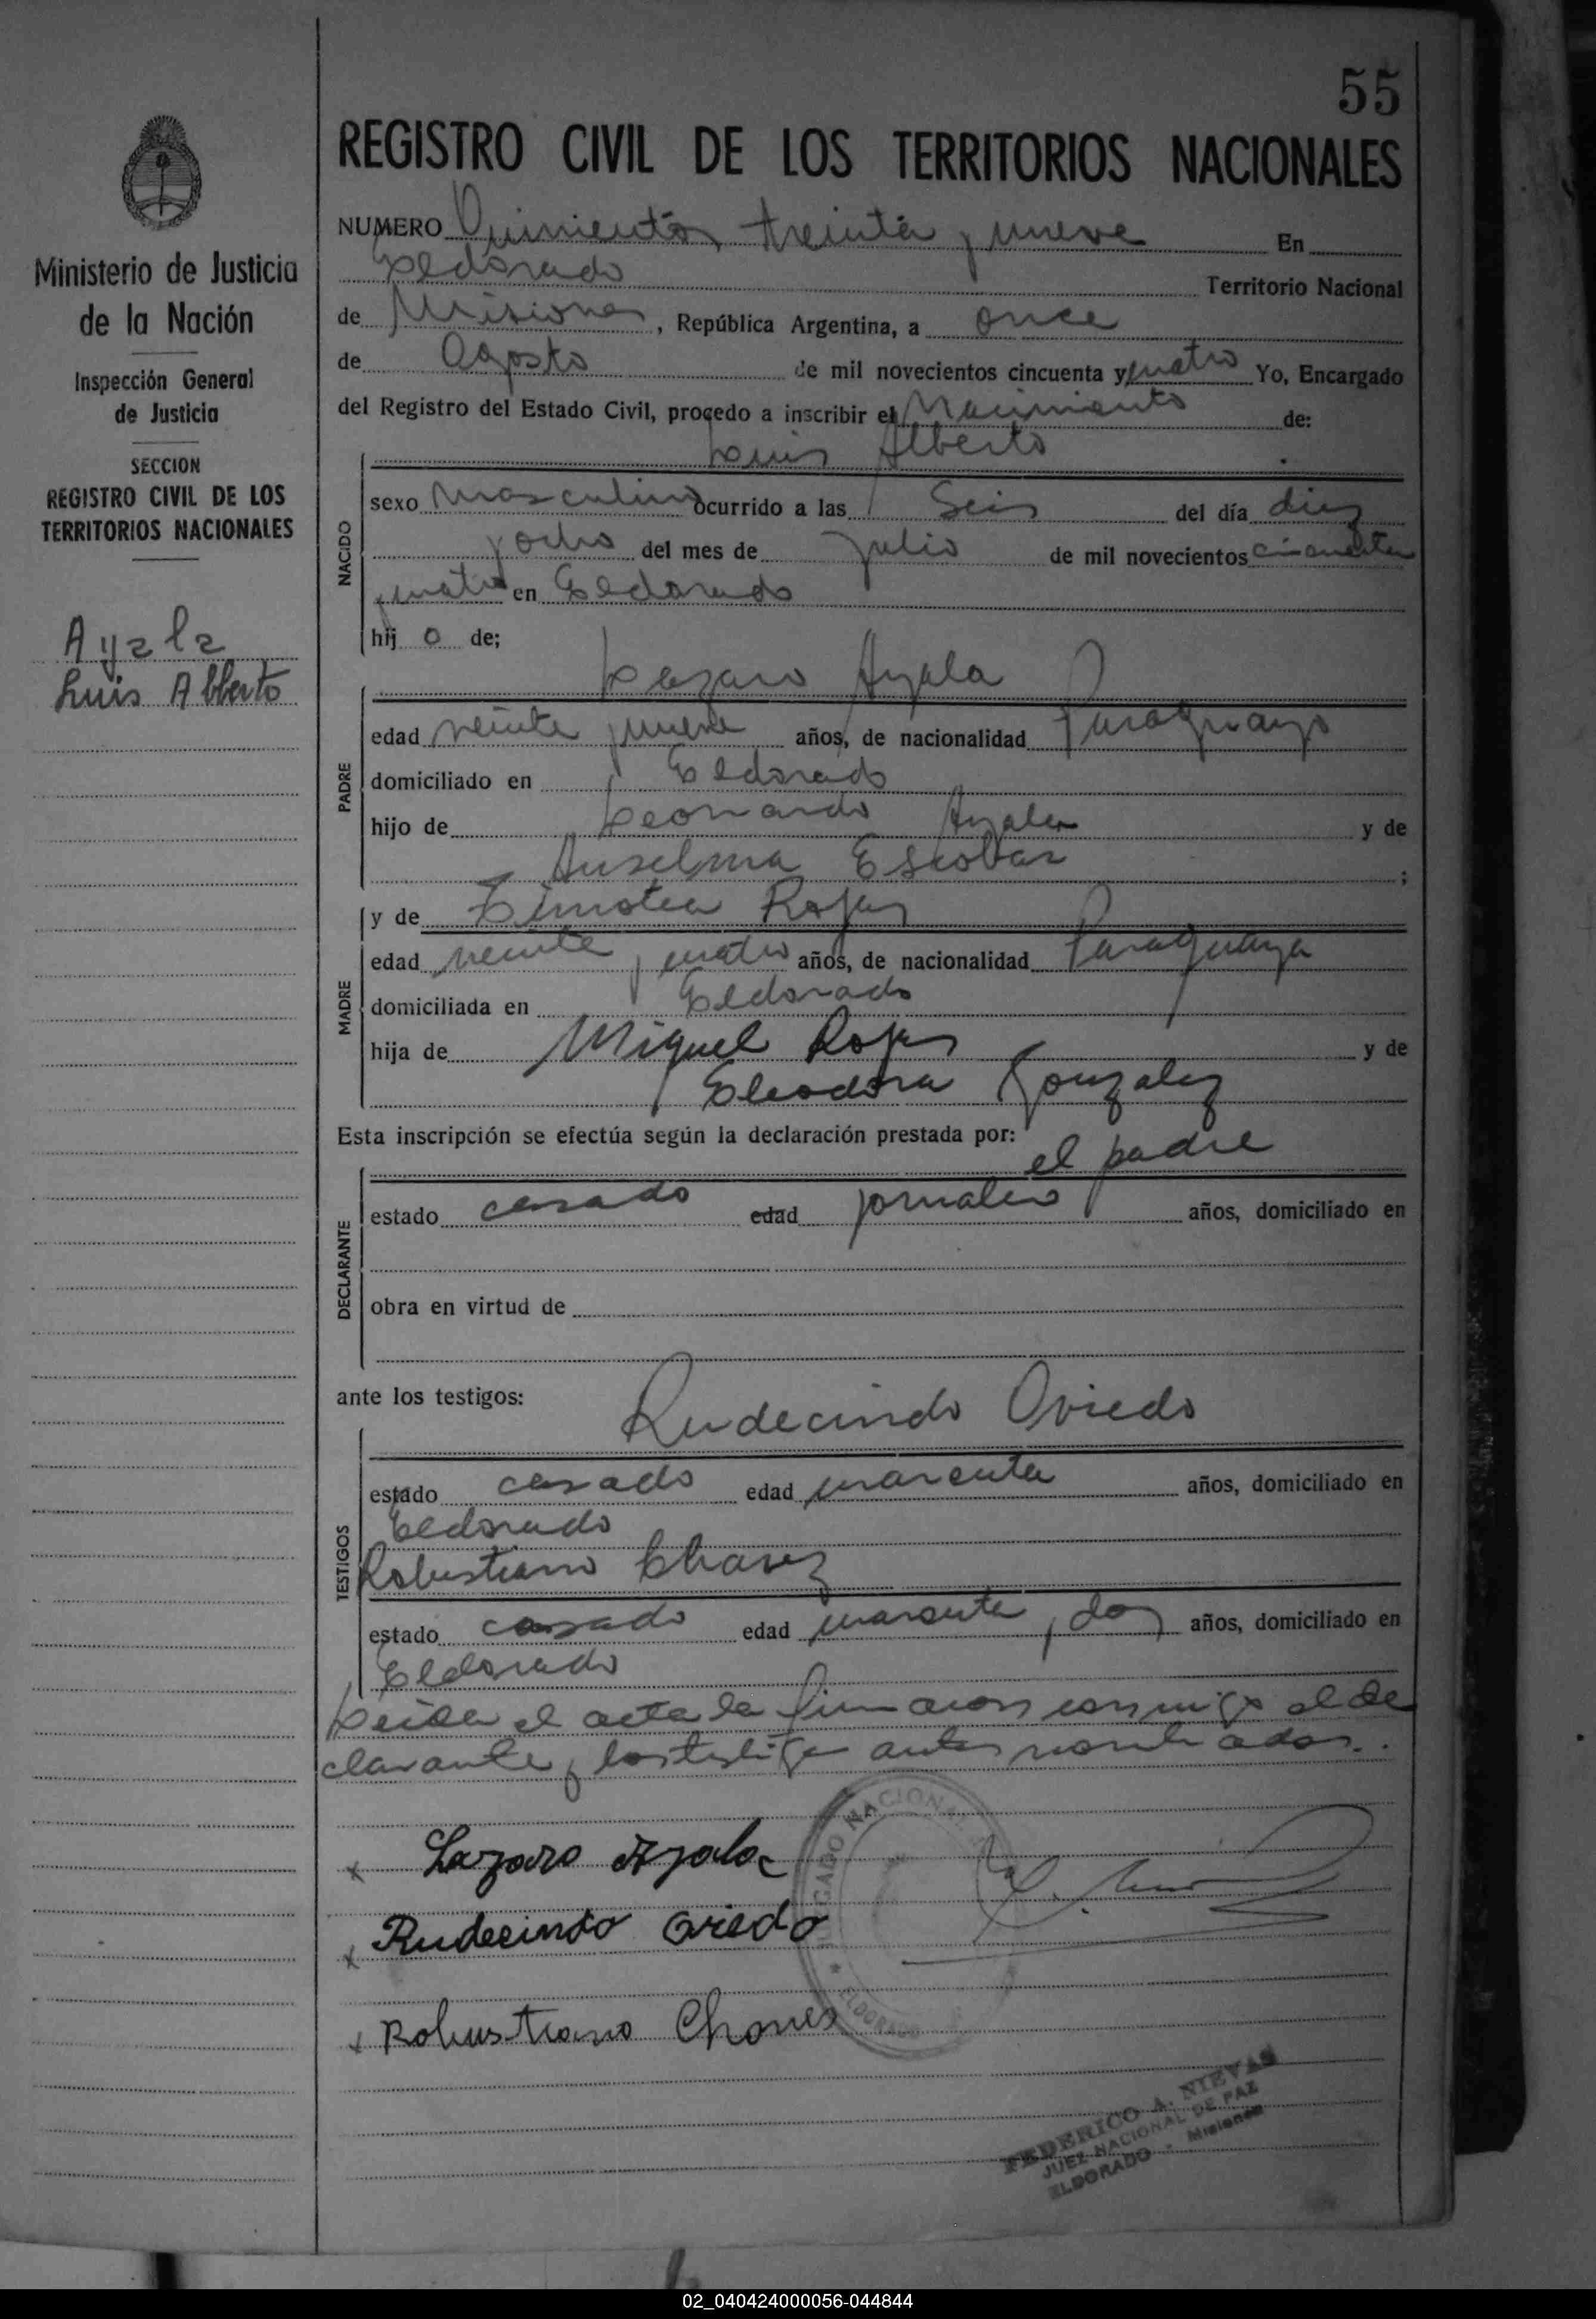 55
REGISTRO CIVIL DE LOS TERRITORIOS NACIONALES
Ministerio de Justicia
de la Nación
Inspección General
de Justicia
SECCION
REGISTRO CIVIL DE LOS
TERRITORIOS NACIONALES
Ayala
Luis Alberto
NUMERO Quinientos treinta y nueve En
Eldorado Territorio Nacional
de Misiones, República Argentina, a once
de Agosto de mil novecientos cincuenta y cuatro Yo, Encargado
del Registro del Estado Civil, procedo a inscribir el Nacimiento de:
Luis Alberto
NACIDO
sexo masculino ocurrido a las Seis del día diez
y ocho del mes de Julio de mil novecientos cincuenta
y cuatro en Eldorado
hij o de;
Lazaro Ayala
PADRE
edad veinte y nueve años, de nacionalidad Paraguayo
domiciliado en Eldorado
hijo de Leonardo Ayala y de
Anselma Escobar ;
y de Timotea Rojas
MADRE
edad veinte y cuatro años, de nacionalidad Paraguaya
domiciliada en Eldorado
hija de Miguel Rojas y de
Eleodora Gonzalez
Esta inscripción se efectúa según la declaración prestada por:
el padre
DECLARANTE
estado casado edad jornalero años, domiciliado en
obra en virtud de
ante los testigos:
Rudecindo Oviedo
TESTIGOS
estado casado edad cuarenta años, domiciliado en
Eldorado
Robustiano Chavez
estado casado edad cuarenta y dos años, domiciliado en
Eldorado
Leida el acta la firmaron conmigo el de
clarante y los testigos antes nombrados.
x Lazaro Ayala
x Rudecindo Oviedo
x Robustiano Chavez
JUZGADO NACIONAL
ELDORADO
FEDERICO A. NIEVAS
JUEZ NACIONAL DE PAZ
ELDORADO - Misiones
02_040424000056-044844